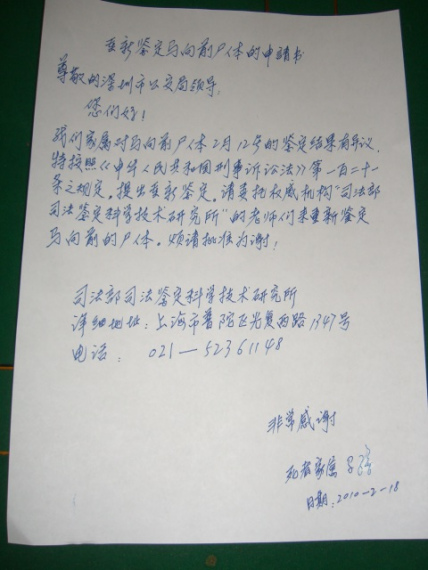 重新鉴定马向前尸体的申请书
尊敬的深圳市公安局领导:
您们好!
我们家属对马向前尸体2月12号的鉴定结果有异议,
特按照《中华人民共和国刑事诉讼法》第一百二十一
条之规定。提出重新鉴定。请委托权威机构“司法部
司法鉴定科学技术研究所”的老师们来重新鉴定
马向前的尸体。烦请批准为谢!
司法部司法鉴定科学技术研究所
详细地址:上海市普陀区光复西路1347号
电话: 021—52361148
非常感谢
死者家属
日期:2010-2-18